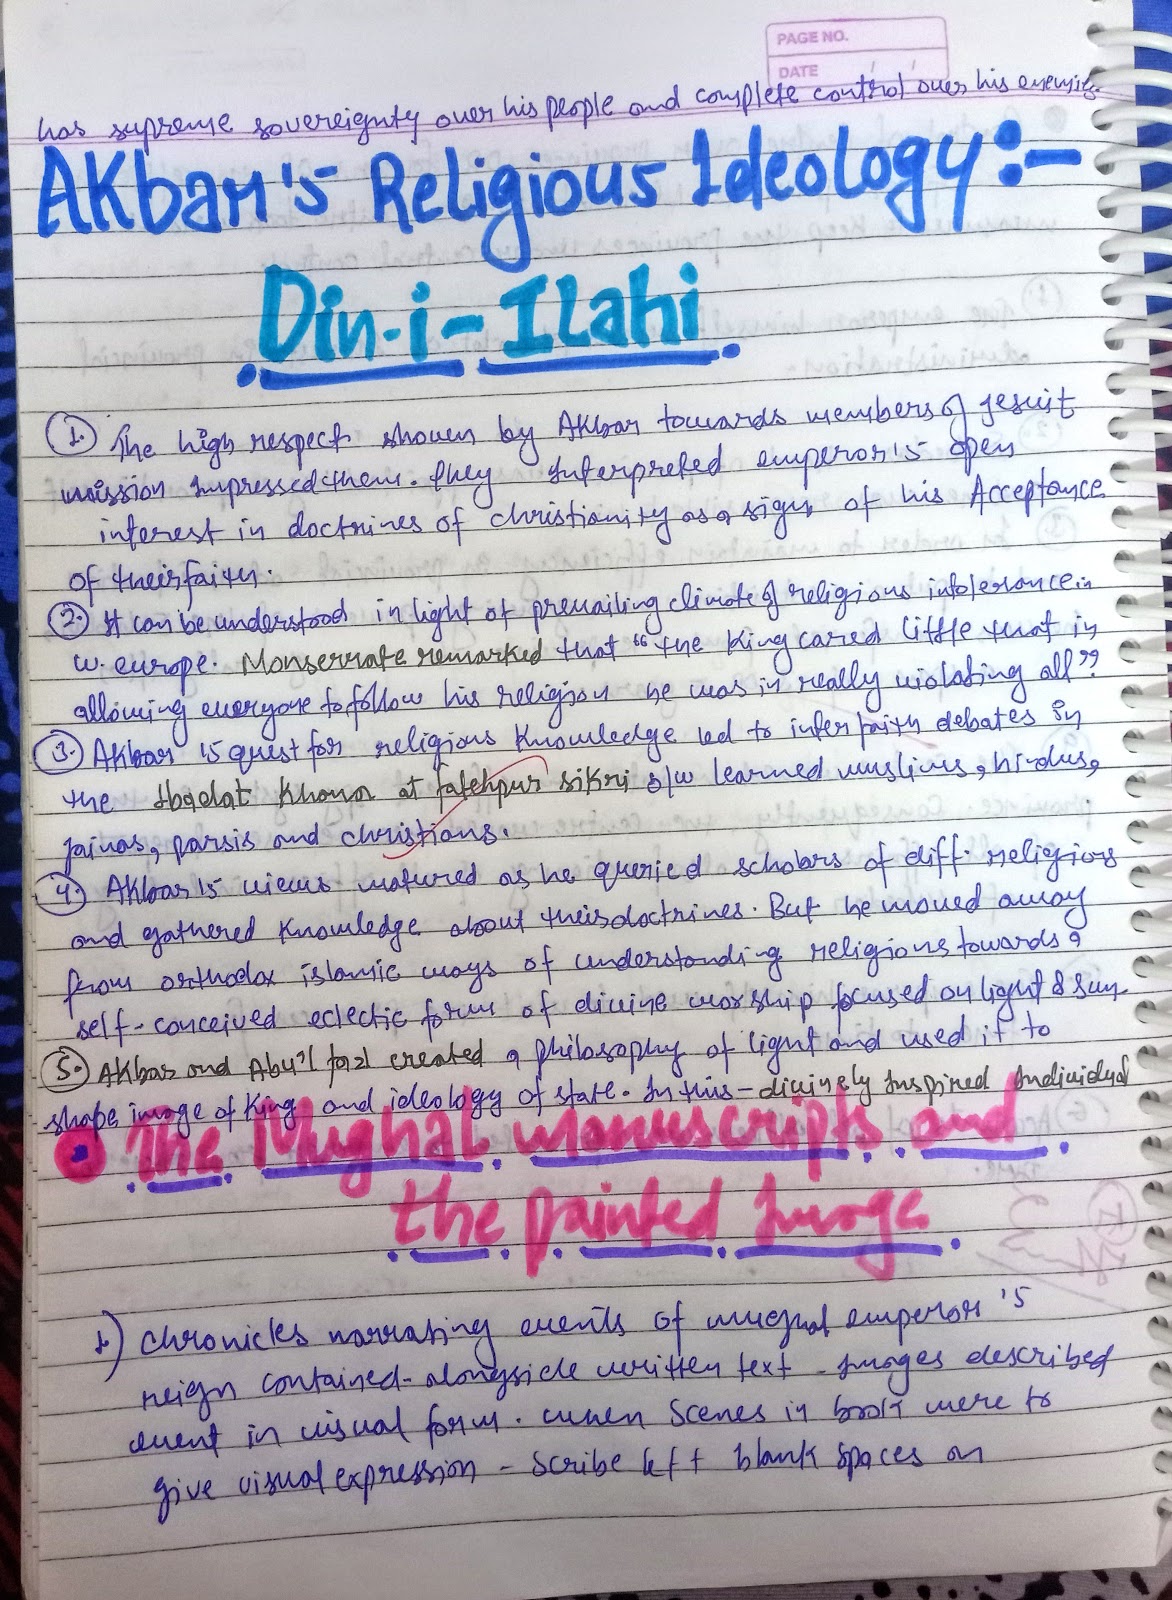 PAGE NO.
DATE
has supreme sovereignty over his people and complete control over his enemies.
Akbar's Religious Ideology:-
Din-i-Ilahi
1. The high respect shown by Akbar towards members of jesuit
mission impressed them. they interpreted emperor's open
interest in doctrines of christianity as a sign of his Acceptance
of their faith.
2. It can be understood in light of prevailing climate of religious intolerance in
w. europe. Monserrate remarked that "the king cared little that in
allowing everyone to follow his religion he was in really violating all"
3. Akbar's quest for religious knowledge led to interfaith debates in
the Ibadat Khana at fatehpur sikri b/w learned muslims, hindus,
jainas, parsis and christians.
4. Akbar's views matured as he queried scholars of diff. religions
and gathered knowledge about their doctrines. But he moved away
from orthodox islamic ways of understanding religions towards a
self-conceived eclectic form of divine worship focused on light & sun
5. Akbar and Abu'l fazl created a philosophy of light and used it to
shape image of king and ideology of state. In this - divinely inspired individual
The Mughal manuscripts and
the painted Image
1) chronicles narrating events of mughal emperor's
reign contained - alongside written text - images described
event in visual form. when scenes in book were to
give visual expression - scribe left blank spaces on